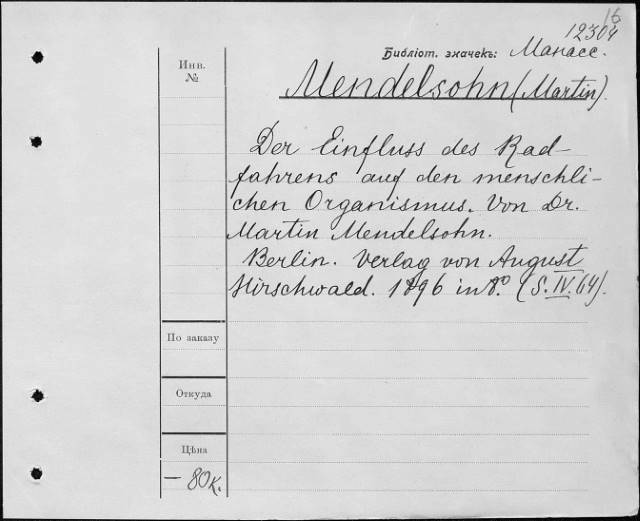 16
12304
Библіот. значекъ: Манасс.
Инв.
№
Mendelsohn (Martin).
Der Einfluss des Rad-
fahrens auf den menschli-
chen Organismus. Von Dr.
Martin Mendelsohn.
Berlin. Verlag von August
Hirschwald. 1896 in 8.° (S. IV. 64).
По заказу
Откуда
Цѣна
— 80 к.